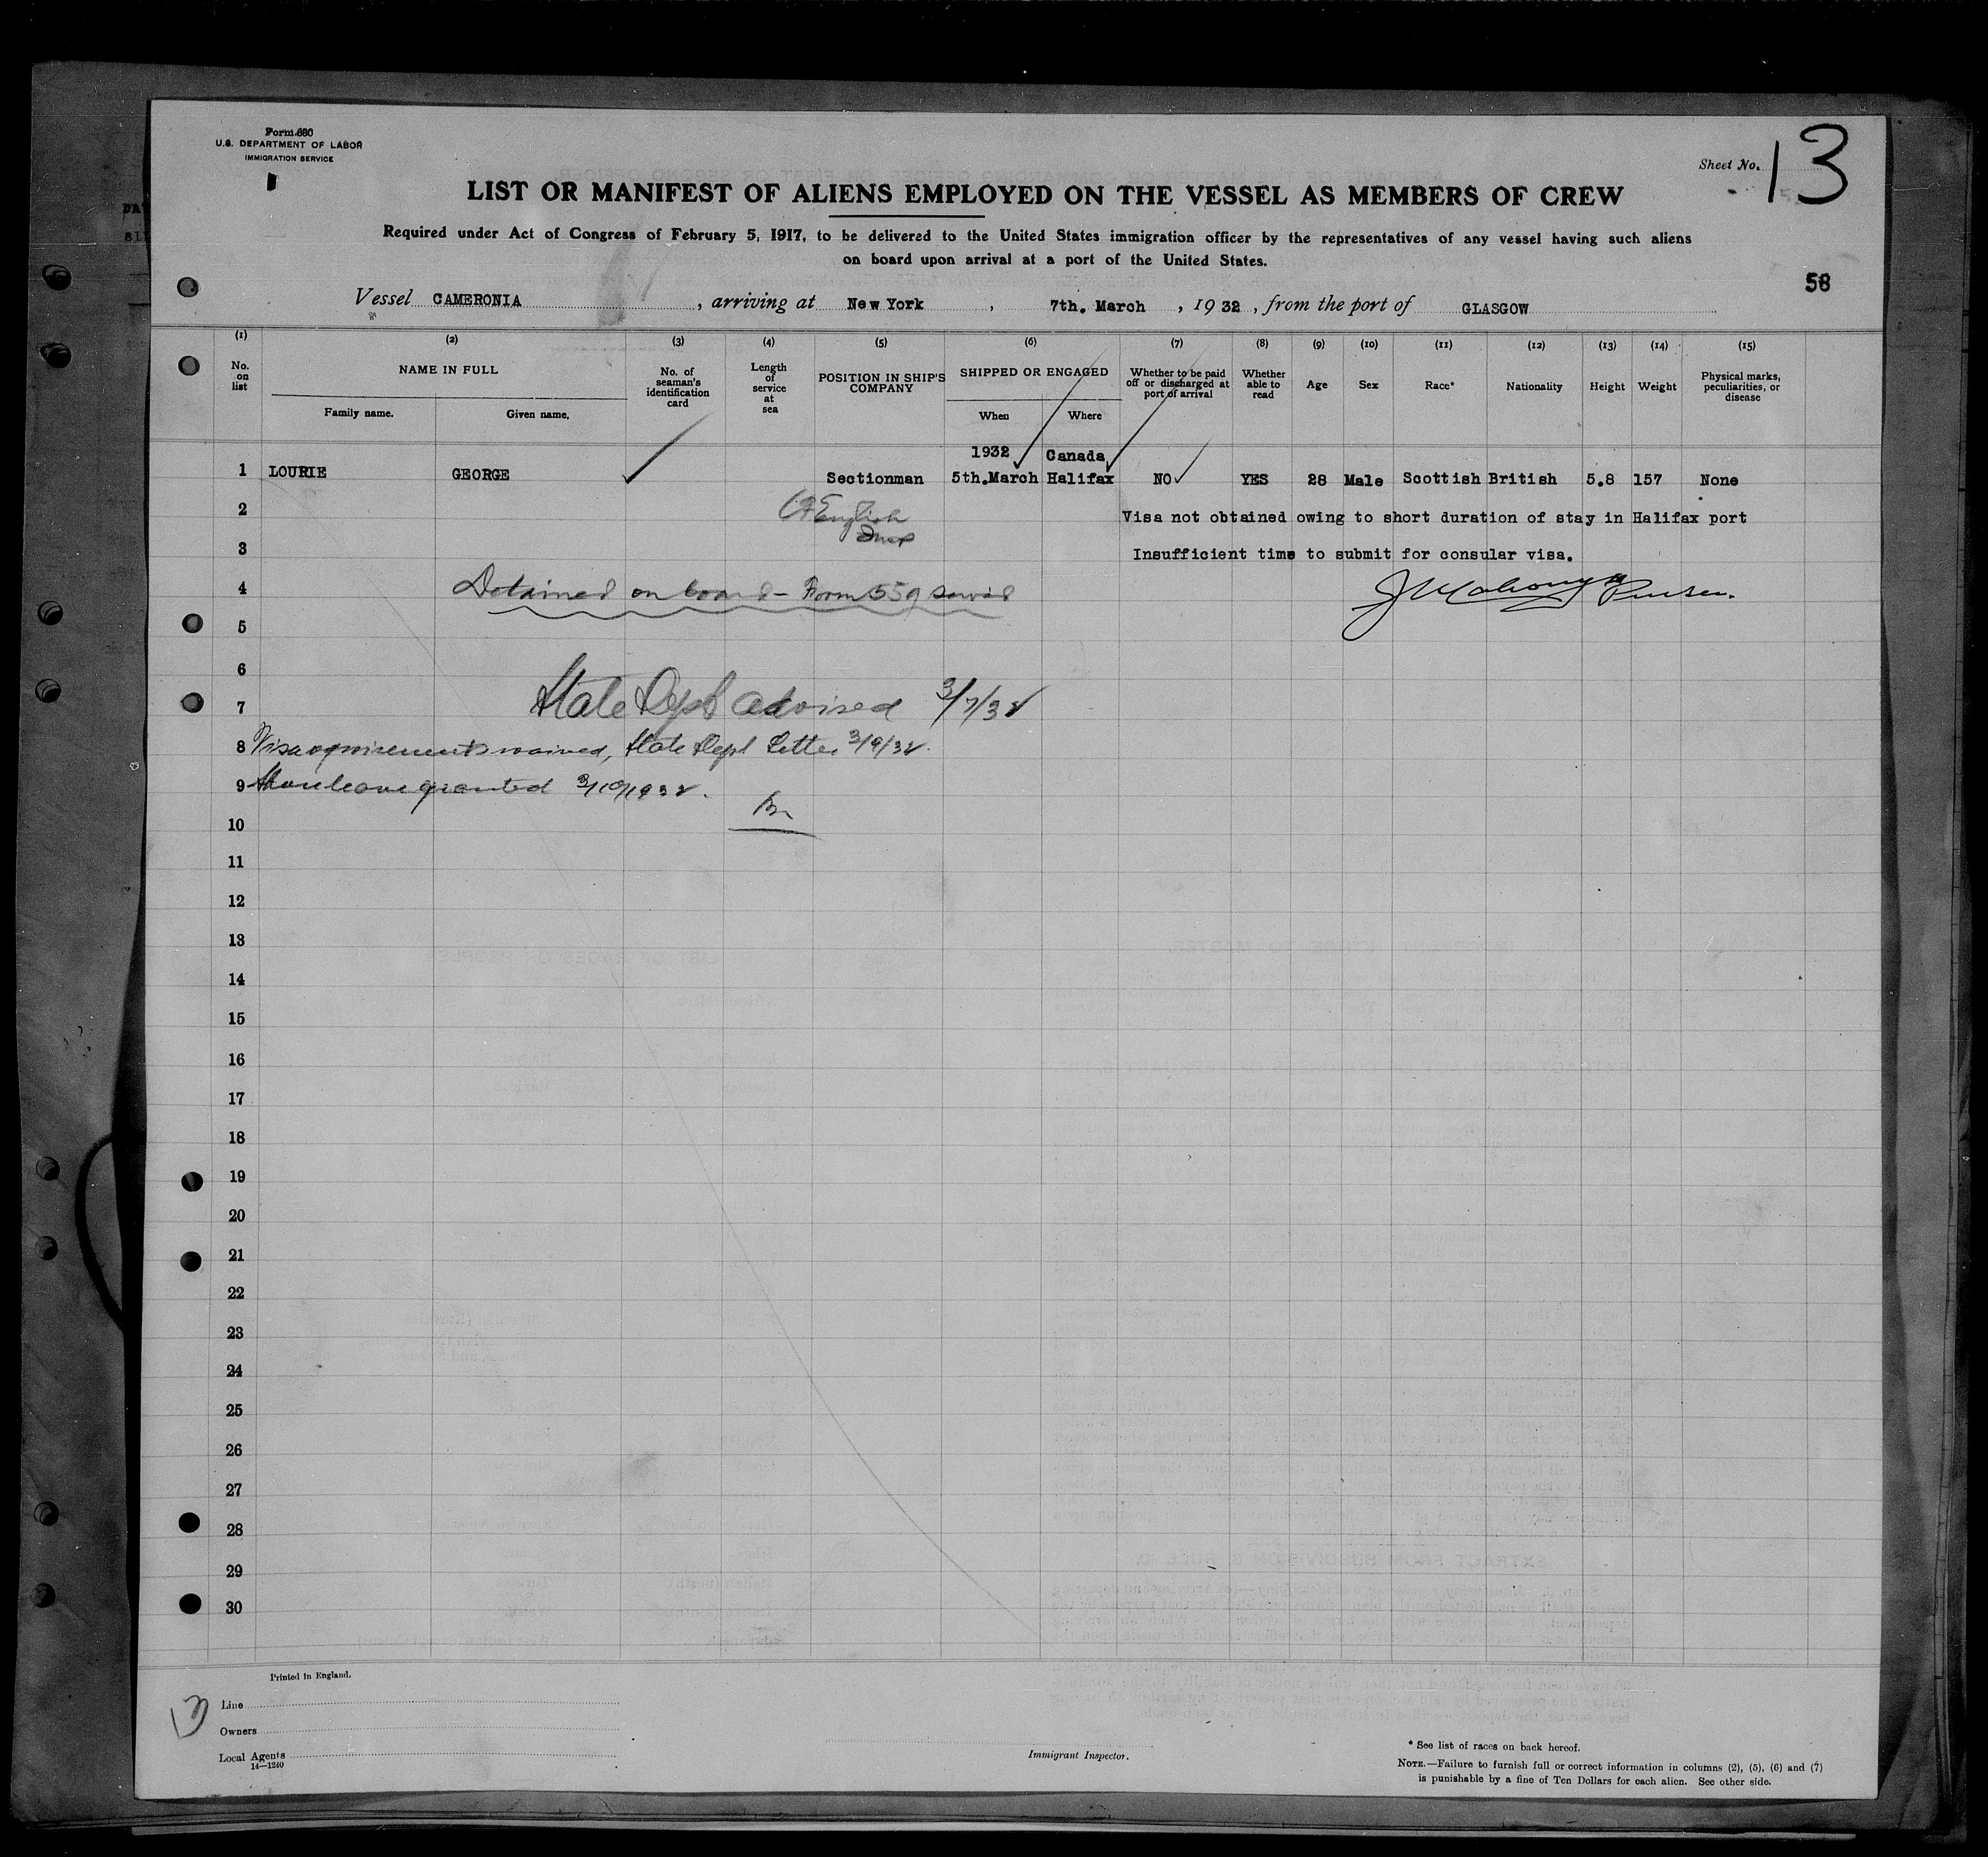 Form 680
U.S. DEPARTMENT OF LABOR
IMMIGRATION SERVICE
Sheet No. 13
LIST OR MANIFEST OF ALIENS EMPLOYED ON THE VESSEL AS MEMBERS OF CREW
Required under Act of Congress of February 5, 1917, to be delivered to the United States immigration officer by the representatives of any vessel having such aliens
on board upon arrival at a port of the United States.
58
Vessel CAMERONIA, arriving at New York, 7th. March, 1932, from the port of GLASGOW
(1) (2) (3) (4) (5) (6) (7) (8) (9) (10) (11) (12) (13) (14) (15)
No. on list
NAME IN FULL
Family name. Given name.
No. of seaman's identification card
Length of service at sea
POSITION IN SHIP'S COMPANY
SHIPPED OR ENGAGED
When Where
Whether to be paid off or discharged at port of arrival
Whether able to read
Age
Sex
Race*
Nationality
Height
Weight
Physical marks, peculiarities, or disease
1932 Canada
1 LOURIE GEORGE Sectionman 5th.March Halifax NO YES 28 Male Scottish British 5.8 157 None
2 English Visa not obtained owing to short duration of stay in Halifax port
3 Insufficient time to submit for consular visa.
4 Detained on board - Form 559 served Purser.
5
6
7 State Dept advised 3/7/32
8 Visa requirements waived, State Dept Letter 3/9/32.
9 Shore leave granted 3/10/1932.
10
11
12
13
14
15
16
17
18
19
20
21
22
23
24
25
26
27
28
29
30
Printed in England.
Line
Owners
Local Agents
14—1240
Immigrant Inspector.
* See list of races on back hereof.
NOTE.—Failure to furnish full or correct information in columns (2), (5), (6) and (7)
is punishable by a fine of Ten Dollars for each alien. See other side.